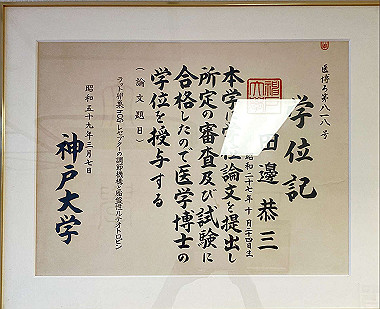 医博ろ第八一八号
学位記
田邊恭三
昭和二十七年十月二十四日生
本学に学位論文を提出し
所定の審査及び試験に
合格したので医学博士の
学位を授与する
(論文題目)
ラット卵巣hCGレセプターの調節機構と胎盤性ルテオトロピン
昭和五十九年三月七日
神戸大学